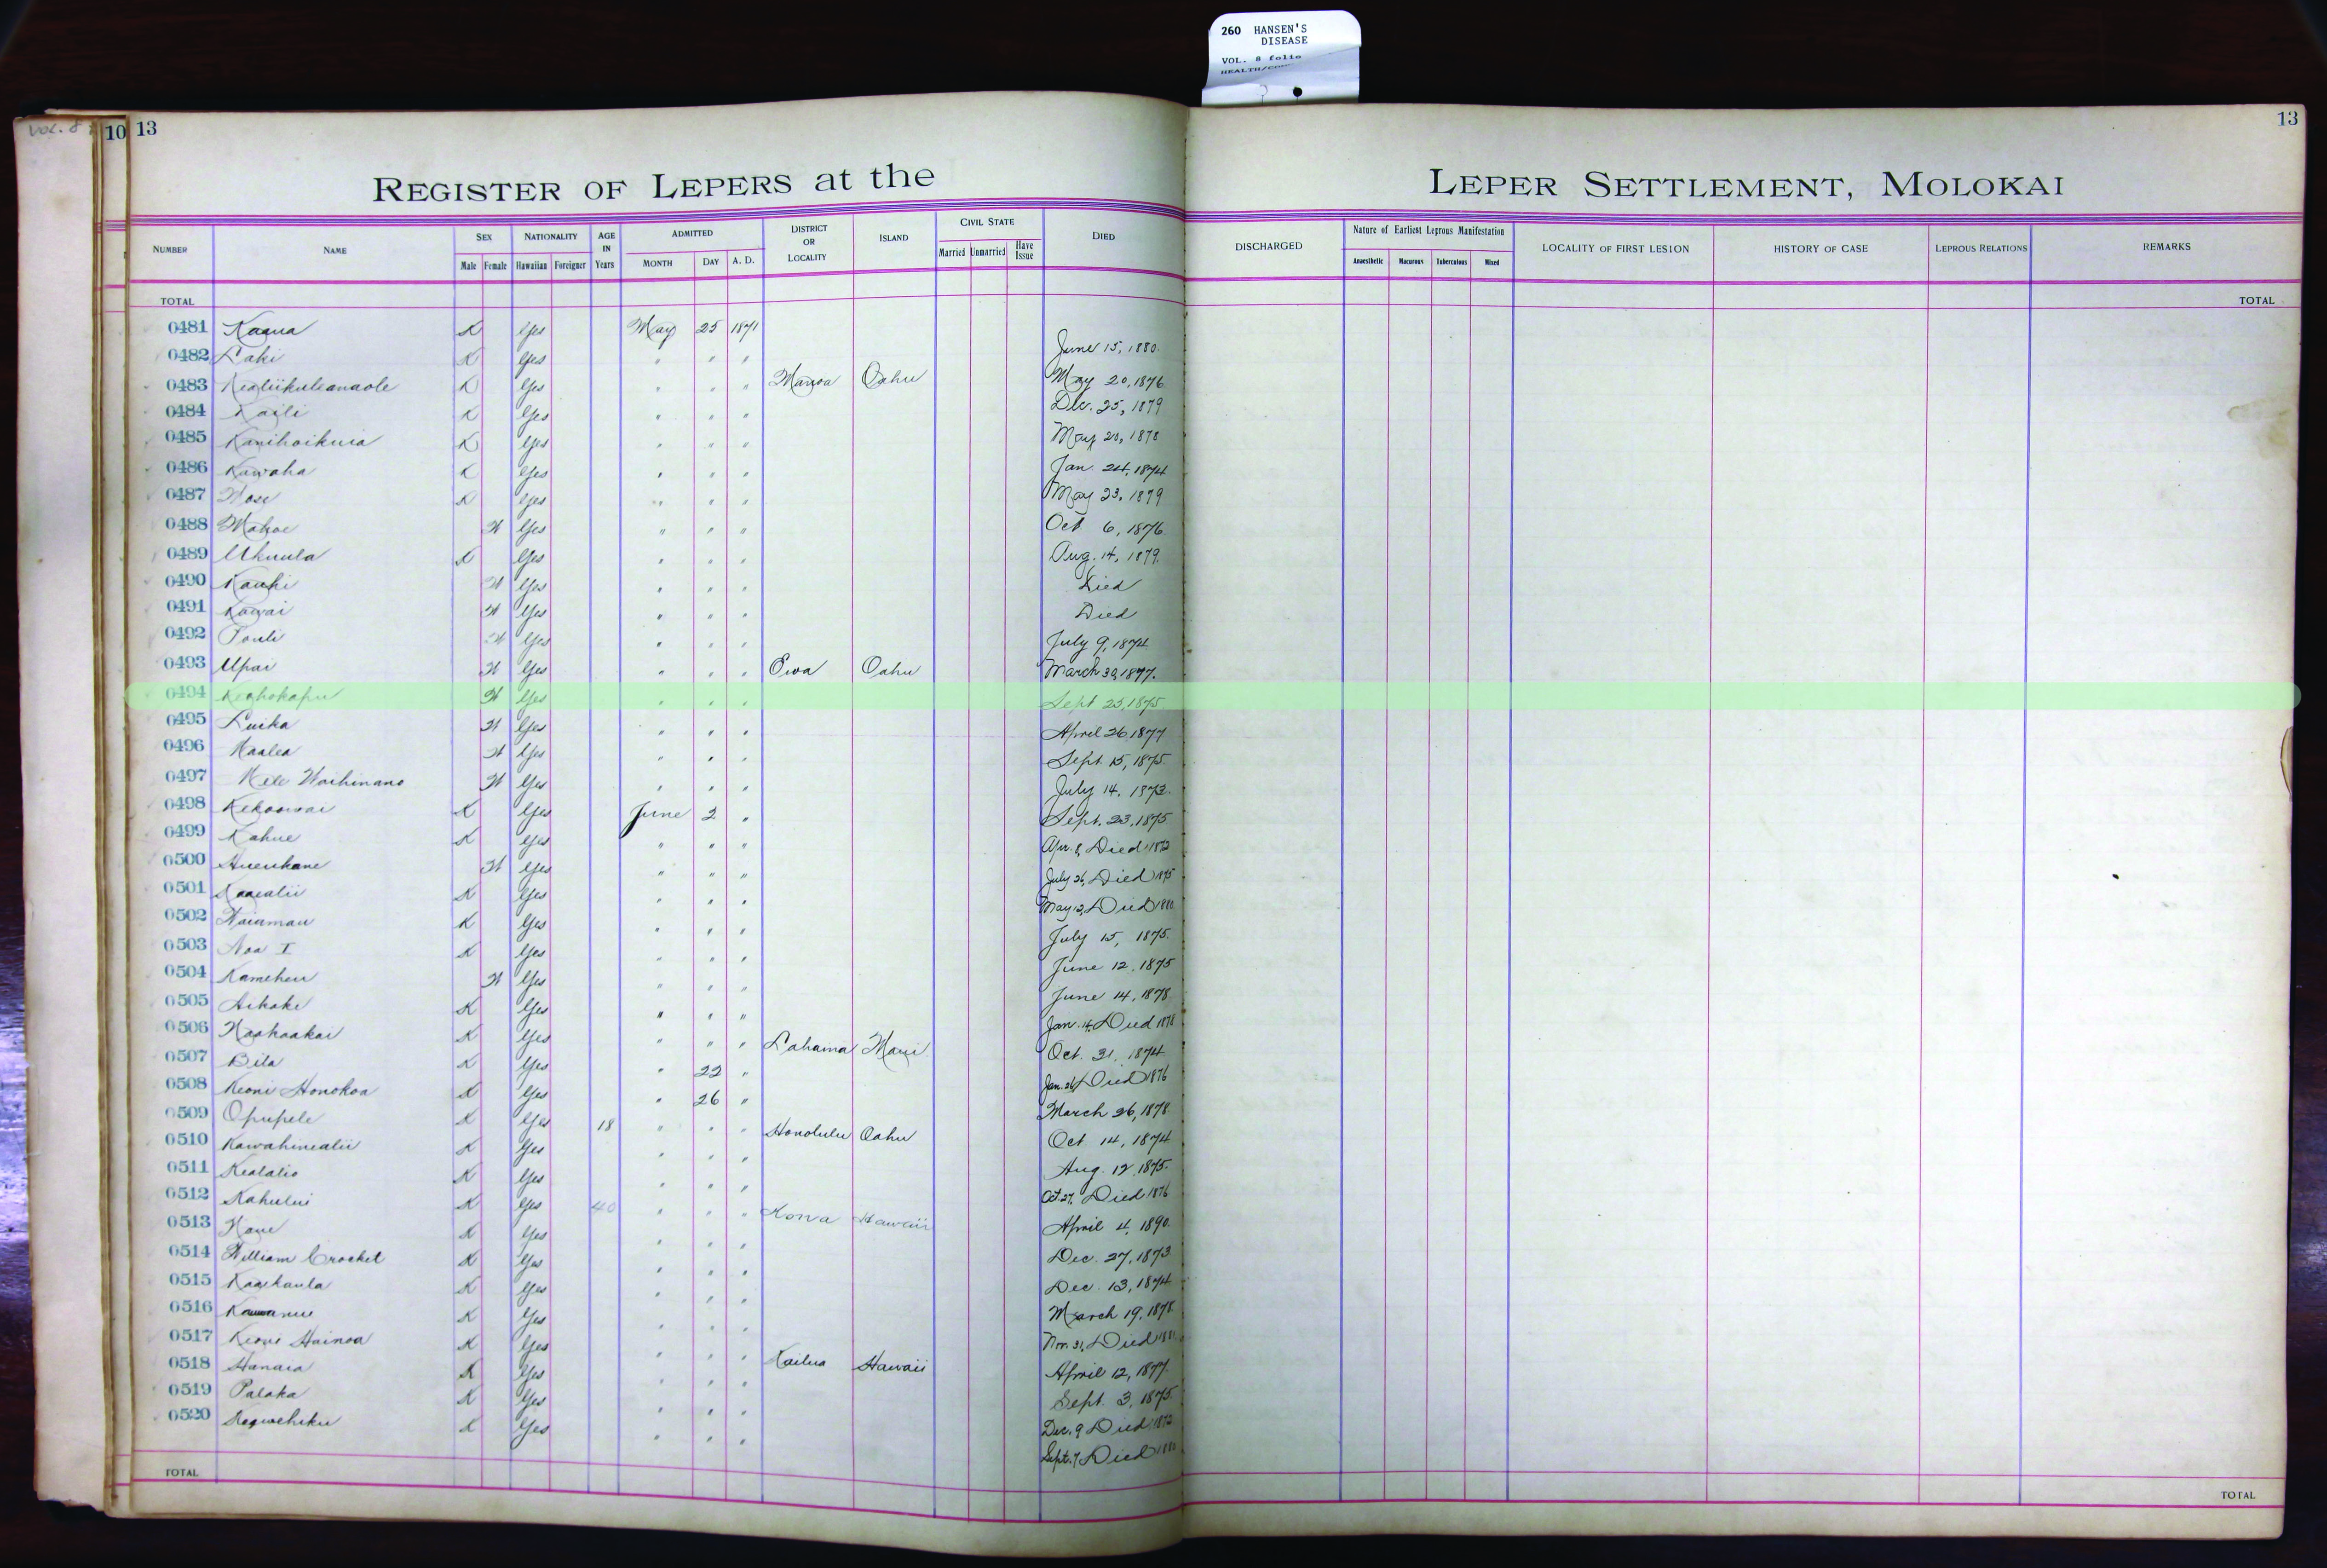 260 HANSEN'S
DISEASE
VOL. 8 folio
VOL. 8
10 13
13
REGISTER OF LEPERS at the LEPER SETTLEMENT, MOLOKAI
NUMBER NAME SEX Male Female NATIONALITY Hawaiian Foreigner AGE IN Years ADMITTED MONTH DAY A. D. DISTRICT OR LOCALITY ISLAND CIVIL STATE Married Unmarried Have Issue DIED DISCHARGED Nature of Earliest Leprous Manifestation Anaesthetic Macurous Tuberculous Mixed LOCALITY OF FIRST LESION HISTORY OF CASE LEPROUS RELATIONS REMARKS
TOTAL TOTAL
0481 Kaaua K Yes May 25 1871 June 15, 1880.
0482 Laki K Yes " " " May 20, 1876
0483 Kealiikuleanaole K Yes " " " Manoa Oahu Dec. 25, 1879
0484 Kaili K Yes " " " May 20, 1878
0485 Kanihoikuia K Yes " " " Jan. 24, 1874
0486 Kawaha K Yes " " " May 23, 1879
0487 K Yes " " " Oct 6, 1876.
0488 Mahoe W Yes " " " Aug. 14, 1879.
0489 Ukuula K Yes " " " Died
0490 Kauhi W Yes " " " Died
0491 Kawai W Yes " " " July 9, 1874
0492 Pauli W Yes " " " March 30, 1877.
0493 Upai W Yes " " " Ewa Oahu
0494 Keohokapu W Yes " " " Sept 25, 1875
0495 Luika W Yes " " " April 26 1877
0496 Maalea W Yes " " " Sept. 15, 1875.
0497 Mele Waihinano W Yes " " " July 14, 1873.
0498 Kekoowai K Yes June 2 " Sept. 23, 1875
0499 Kahue K Yes " " " Apr. 8, Died 1872
0500 Hueukane W Yes " " " July 26, Died 1875
0501 Kaaealii K Yes " " " May 12, Died 1880
0502 Waiamau K Yes " " " July 15, 1875.
0503 Noa I K Yes " " " June 12, 1875
0504 Kameheu W Yes " " " June 14, 1878
0505 Aikake K Yes " " " Jan. 14, Died 1878
0506 Naahaakai K Yes " " " Lahaina Maui Oct. 31, 1874
0507 Bila K Yes " 22 " Jan. 26, Died 1876
0508 Keoni Honokoa K Yes " 26 " March 26, 1878
0509 Opupele K Yes 18 " " " Honolulu Oahu Oct 14, 1874
0510 Kawahinealii K Yes " " " Aug. 12, 1875.
0511 Kealalio K Yes " " " Oct. 27, Died 1876
0512 Kahului K Yes 40 " " " Kona Hawaii April 4, 1890.
0513 K Yes " " " Dec. 27, 1873
0514 William Crocket K Yes " " " Dec. 13, 1874
0515 Kaaikaula K Yes " " " March 19, 1878
0516 K Yes " " " Nov. 31, Died
0517 Keoni Hainoa K Yes " " " Kailua Hawaii April 12, 1877.
0518 Hanaia K Yes " " " Sept. 3, 1875.
0519 Palaka K Yes " " " Dec. 9 Died 1872
0520 K Yes " " " Sept. 7, Died
TOTAL TOTAL